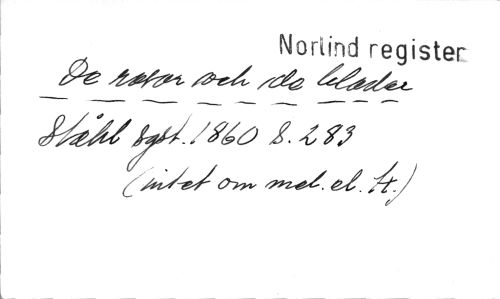 Norlind register
De rosor och de blader
Ståhl sgst. 1860 S. 283
(intet om mel. el. H.)